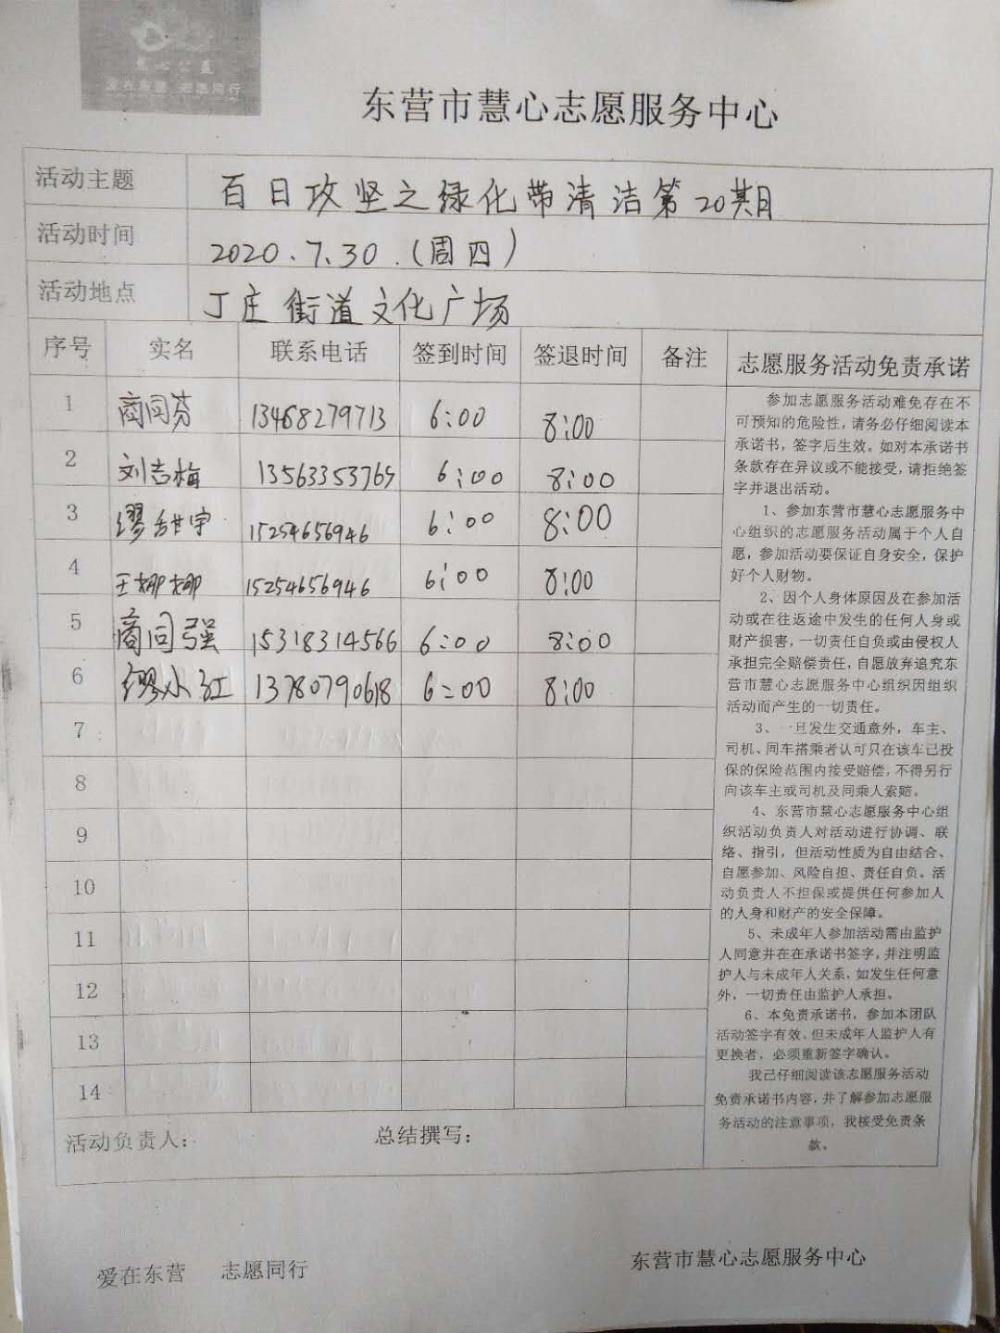 爱在东营 志愿同行
东营市慧心志愿服务中心
活动主题 百日攻坚之绿化带清洁第20期
活动时间 2020.7.30.(周四)
活动地点 丁庄街道文化广场
序号 实名 联系电话 签到时间 签退时间 备注
1 商同芬 13468279713 6:00 8:00
2 刘吉梅 13563353769 6:00 8:00
3 缪甜宇 15254656946 6:00 8:00
4 王娜娜 15254656946 6:00 8:00
5 商同强 15318314566 6:00 8:00
6 缪小红 13780790618 6:00 8:00
7
8
9
10
11
12
13
14
活动负责人: 总结撰写:
志愿服务活动免责承诺
参加志愿服务活动难免存在不
可预知的危险性,请务必仔细阅读本
承诺书,签字后生效。如对本承诺书
条款存在异议或不能接受,请拒绝签
字并退出活动。
1、参加东营市慧心志愿服务中
心组织的志愿服务活动属于个人自
愿,参加活动要保证自身安全,保护
好个人财物。
2、因个人身体原因及在参加活
动或在往返途中发生的任何人身或
财产损害,一切责任自负或由侵权人
承担完全赔偿责任,自愿放弃追究东
营市慧心志愿服务中心组织因组织
活动而产生的一切责任。
3、一旦发生交通意外,车主、
司机、同车搭乘者认可只在该车已投
保的保险范围内接受赔偿,不得另行
向该车主或司机及同乘人索赔。
4、东营市慧心志愿服务中心组
织活动负责人对活动进行协调、联
络、指引,但活动性质为自由结合、
自愿参加、风险自担、责任自负。活
动负责人不担保或提供任何参加人
的人身和财产的安全保障。
5、未成年人参加活动需由监护
人同意并在在承诺书签字,并注明监
护人与未成年人关系,如发生任何意
外,一切责任由监护人承担。
6、本免责承诺书,参加本团队
活动签字有效,但未成年人监护人有
更换者,必须重新签字确认。
我已仔细阅读该志愿服务活动
免责承诺书内容,并了解参加志愿服
务活动的注意事项,我接受免责条
款。
爱在东营 志愿同行
东营市慧心志愿服务中心